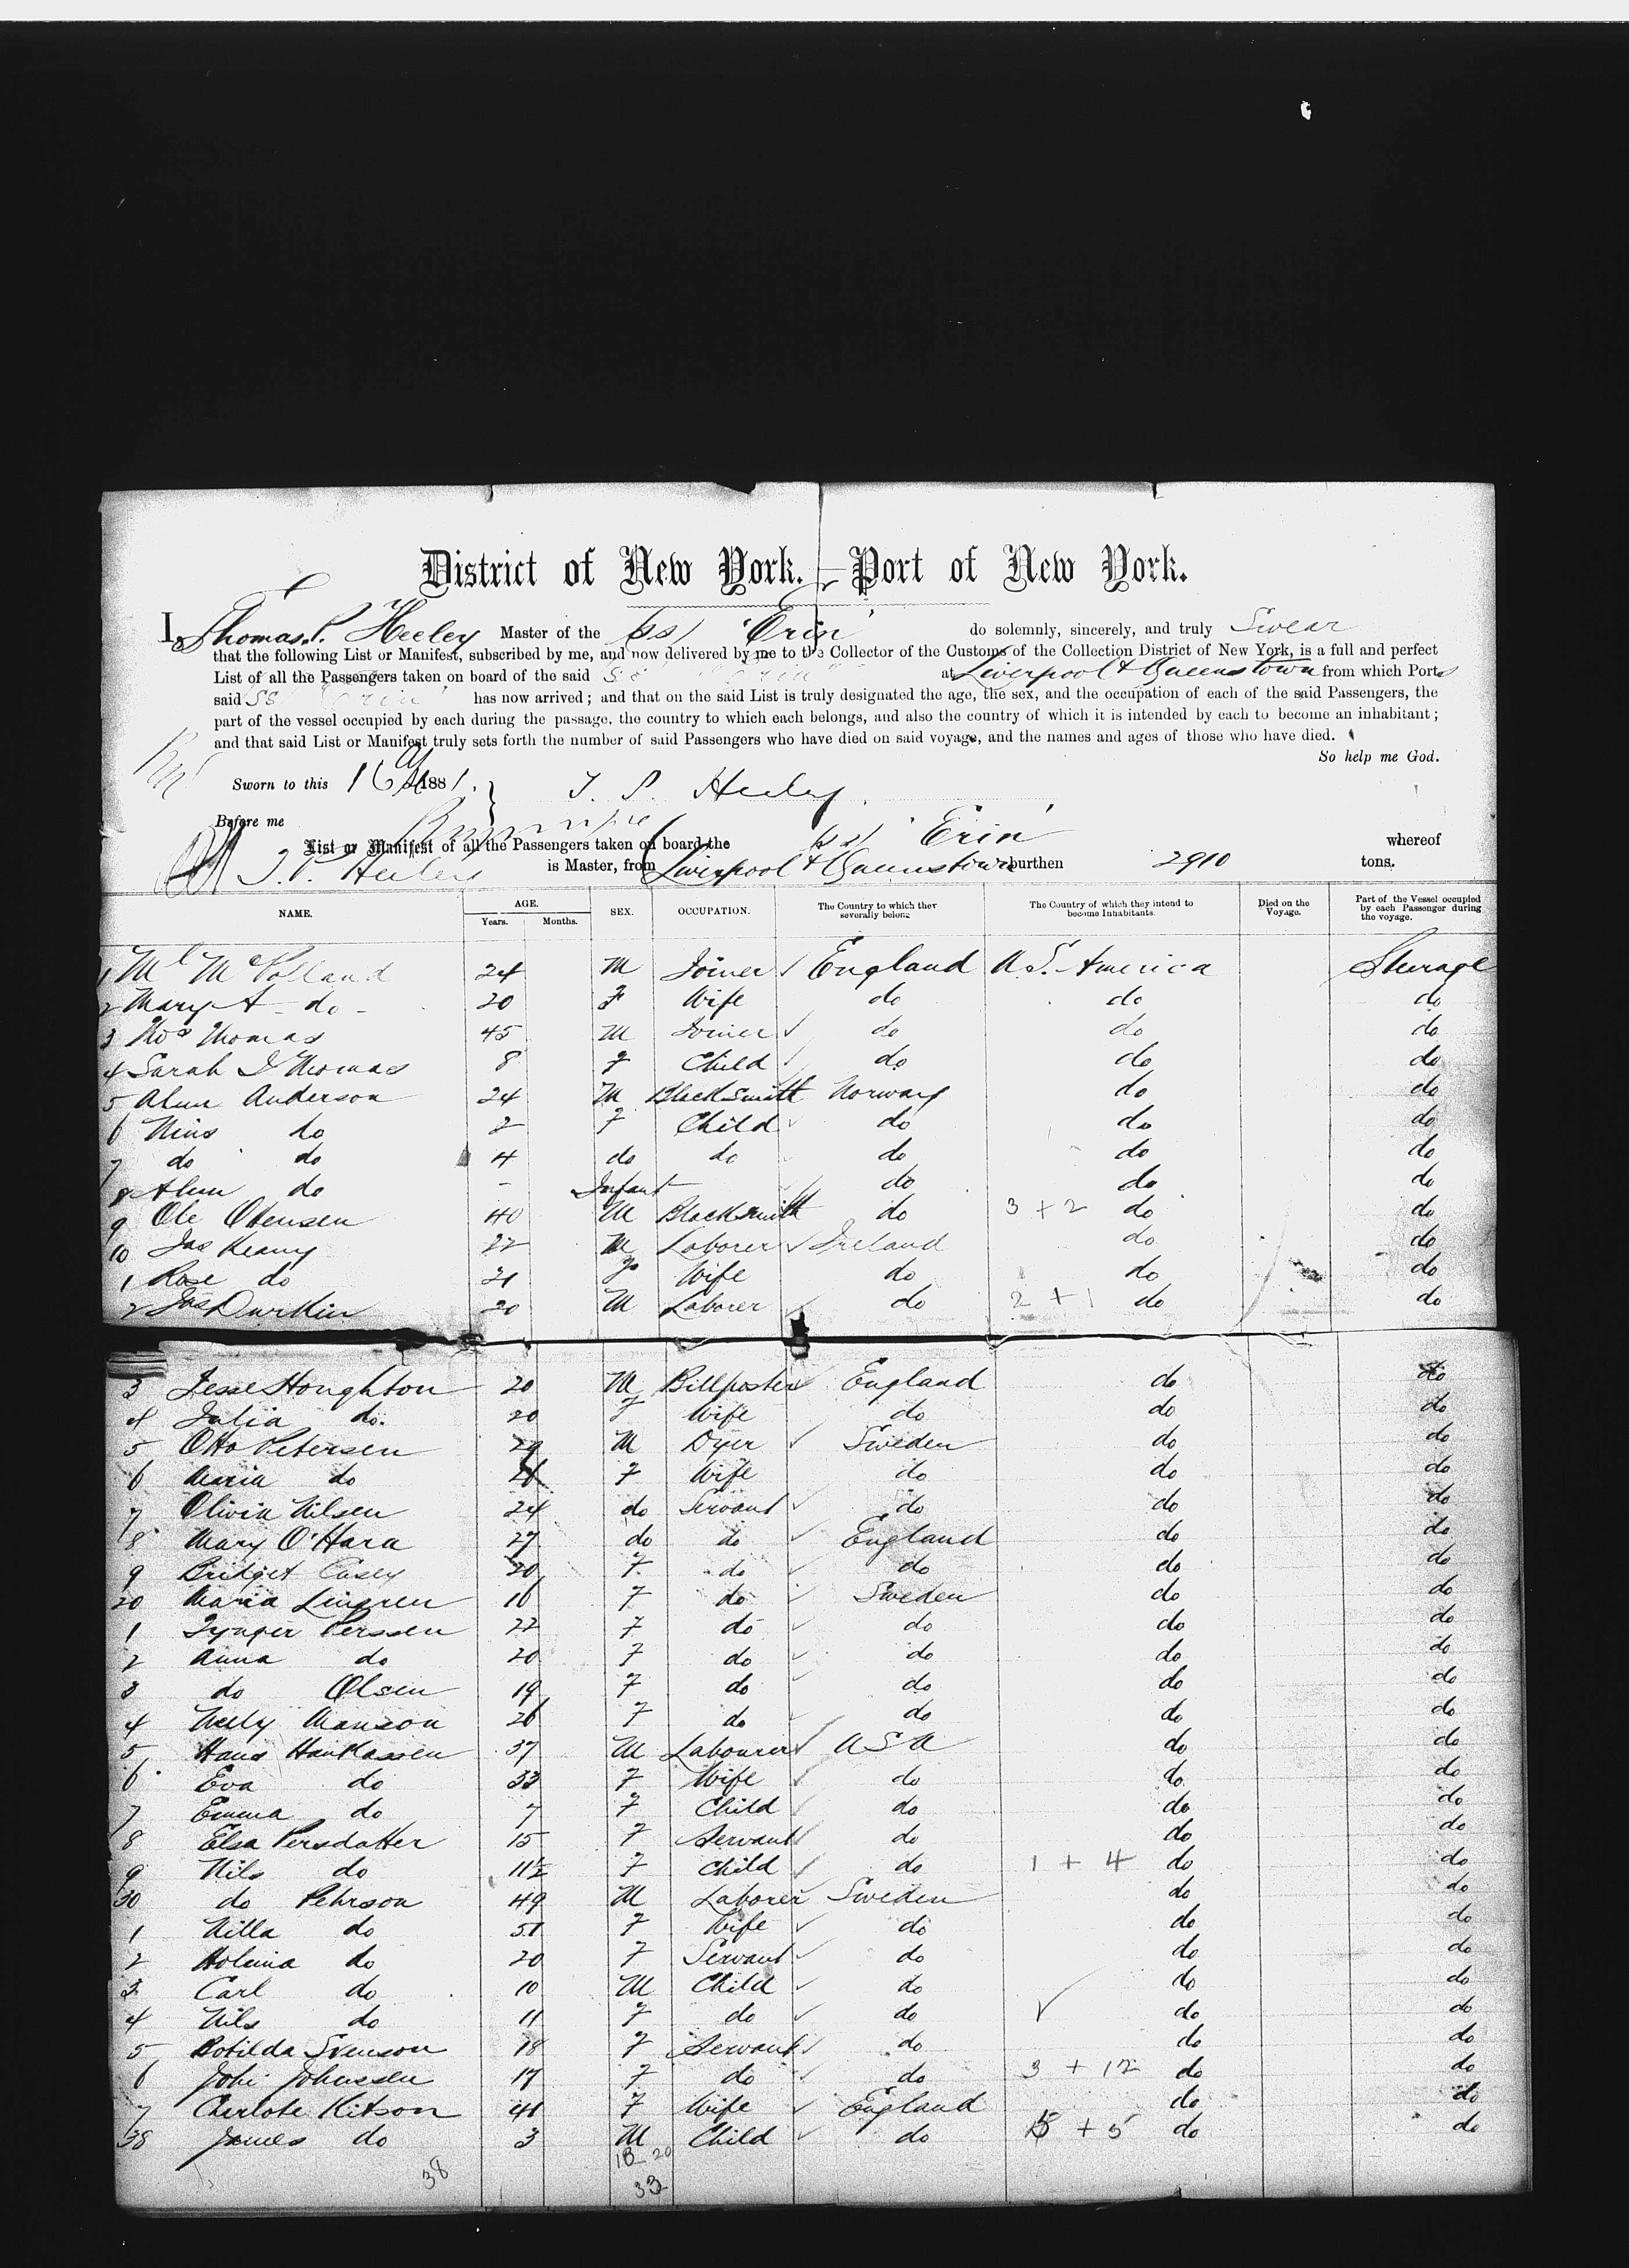 District of New York.—Port of New York.
I, Thomas P. Heeley Master of the (ss) 'Erin' do solemnly, sincerely, and truly Swear
that the following List or Manifest, subscribed by me, and now delivered by me to the Collector of the Customs of the Collection District of New York, is a full and perfect
List of all the Passengers taken on board of the said SS Erin at Liverpool & Queenstown from which Ports
said SS Erin has now arrived; and that on the said List is truly designated the age, the sex, and the occupation of each of the said Passengers, the
part of the vessel occupied by each during the passage, the country to which each belongs, and also the country of which it is intended by each to become an inhabitant;
and that said List or Manifest truly sets forth the number of said Passengers who have died on said voyage, and the names and ages of those who have died.
So help me God.
Sworn to this 16 1881. T. P. Heeley
Before me
List or Manifest of all the Passengers taken on board the (ss) 'Erin' whereof
T. P. Heeley is Master, from Liverpool & Queenstown burthen 2910 tons.
NAME. AGE. Years. Months. SEX. OCCUPATION. The Country to which they severally belong The Country of which they intend to become Inhabitants. Died on the Voyage. Part of the Vessel occupied by each Passenger during the voyage.
1 Ml McPolland 24 M Joiner England U.S. America Steerage
2 Mary A do 20 F Wife do do do
3 Thos Thomas 45 M Joiner do do do
4 Sarah J Thomas 8 F Child do do do
5 Anderson 24 M Blacksmith Norway do do
6 Nins do 2 F Child do do do
7 do do 4 do do do do do
8 do - Infant do do do
9 Ole 40 M Blacksmith do 3 + 2 do do
10 Jas Keany 22 M Laborer Ireland do do
1 Rose do 21 F Wife do do do
2 Jas Durkin 20 M Laborer do 2 + 1 do do
3 Jesse Houghton 20 M Billposter England do do
4 Julia do. 20 F Wife do do do
5 Otto Petersen 29 M Dyer Sweden do do
6 Maria do F Wife do do do
7 Olivia Nilsen 24 do Servant do do do
8 Mary O'Hara 27 do do England do do
9 Bridget Casey 20 F do do do do
20 Maria Lingren 16 F do Sweden do do
1 Perssen 22 F do do do do
2 Anna do 20 F do do do do
3 do Olsen 19 F do do do do
4 Nelly Manson 26 F do do do do
5 Hans Hankassen 37 M Labourer USA do do
6 Eva do 33 F Wife do do do
7 Emma do 7 F Child do do do
8 Elsa Persdatter 15 F Servant do do do
9 Nils do 11½ F Child do 1 + 4 do do
30 do Pehrson 49 M Laborer Sweden do do
1 Nilla do 51 F Wife do do do
2 do 20 F Servant do do do
3 Carl do 10 M Child do do do
4 Nils do 11 F do do do do
5 Botilda Svenson 18 F Servant do do do
6 Johi Johnssen 17 F do do 3 + 12 do do
7 Charlote Kitson 41 F Wife England do do
38 James do 3 M Child do + 5 do do
38 18 20
33